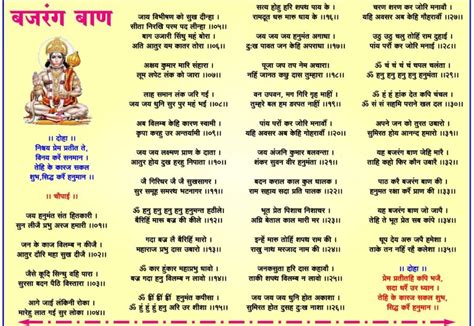 बजरंग बाण
॥ दोहा ॥
निश्चय प्रेम प्रतीत ते,
बिनय करें सनमान ।
तेहि के कारज सकल
शुभ,सिद्ध करें हनुमान ॥
॥ चौपाई ॥
जय हनुमंत संत हितकारी
सुन लीजै प्रभु अरज हमारी ॥०१॥
जन के काज बिलम्ब न कीजै
आतुर दौरि महा सुख दीजै ॥०२॥
जैसे कूदि सिन्धु वहि पारा
सुरसा बदन पैठि विस्तारा ॥०३॥
आगे जाई लंकिनी रोका
मारेहु लात गई सुर लोका ॥०४॥
जाय विभीषण को सुख दीन्हा
सीता निरखि परम पद लीन्हा ॥०५॥
बाग उजारी सिंधु महं बोरा
अति आतुर यम कातर तोरा ॥०६॥
अक्षय कुमार मारि संहारा
लूम लपेट लंक को जारा ॥०७॥
लाह समान लंक जरि गई
जय जय धुनि सुर पुर महं भई ॥०८॥
अब विलम्ब केहि कारण स्वामी
कृपा करहु उर अन्तर्यामी ॥०९॥
जय जय लक्ष्मण प्राण के दाता
आतुर होय दुख हरहु निपाता ॥१०॥
जै गिरिधर जै जै सुखसागर
सुर समूह समरथ भटनागर ॥११॥
ॐ हनु हनु हनु हनुमन्त हठीले
बैरिहिं मारु बज्र की कीले ॥१२॥
गदा बज्र लै बैरिहिं मारो
महाराज प्रभु दास उबारो ॥१३॥
ॐकार हुंकार महाप्रभु धावो
बज्र गदा हनु विलम्ब न लावो ॥१४॥
ॐ ह्रीं ह्रीं ह्रीं हनुमन्त कपीसा
ॐ हुं हुं हुं हनु अरि उर शीशा ॥१५॥
सत्य होहु हरि शपथ पाय के
रामदूत धरु मारु धाय के ॥१६॥
जय जय जय हनुमंत अगाधा
दुःख पावत जन केहि अपराधा ॥१७॥
पूजा जप तप नेम अचारा
नहिं जानत कछु दास तुम्हारा ॥१८॥
वन उपवन, मग गिरि गृह माहीं
तुम्हरे बल हम डरपत नाहीं ॥१९॥
पांय परों कर जोरि मनावौं
यहि अवसर अब केहि गोहरावौं ॥२०॥
जय अंजनि कुमार बलवन्ता
शंकर सुवन वीर हनुमंता ॥२१॥
बदन कराल काल कुल घालक
राम सहाय सदा प्रति पालक ॥२२॥
भूत प्रेत पिशाच निशाचर
अग्नि बेताल काल मारी मर ॥२३॥
इन्हें मारु तोहिं शपथ राम की
राखु नाथ मरजाद नाम की ॥२४॥
जनकसुता हरिदास कहावौ
ताकी शपथ विलम्ब न लावो ॥२५॥
चरण शरण कर जोरि मनावौ
यहि अवसर अब केहि गोहरावौं ॥२६॥
उठु उठु चलु तोहिं राम दुहाई
पांय परों कर जोरि मनाई ॥२७॥
ॐ चं चं चं चं चपल चलंता
ॐ हनु हनु हनु हनु हनुमंता ॥२८॥
ॐ हं हं हांक देत कपि चंचल
ॐ सं सं सहमि पराने खल दल ॥२९॥
अपने जन को तुरत उबारो
सुमिरत होय आनन्द हमारो ॥३०॥
यह बजरंग बाण जेहि मारै
ताहि कहो फिर कौन उबारै ॥३१॥
पाठ करै बजरंग बाण की
हनुमत रक्षा करैं प्राण की ॥३२॥
यह बजरंग बाण जो जापै
ताते भूत प्रेत सब कांपै ॥३३॥
धूप देय अरु जपै हमेशा
ताके तन नहिं रहै कलेशा ॥३४॥
॥ दोहा ॥
प्रेम प्रतीतहि कपि भजै,
सदा धरैं उर ध्यान ।
तेहि के कारज सकल
शुभ,सिद्ध करैं हनुमान ॥